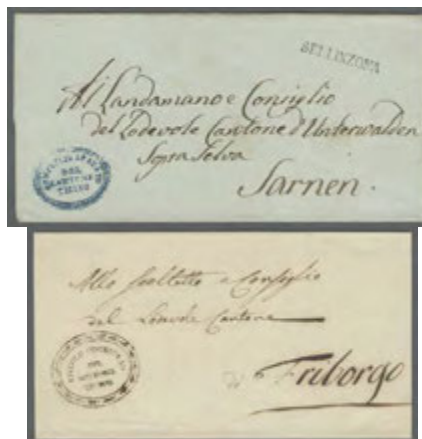 BELLINZONA
Al Landamano e Consiglio
del Lodevole Cantone d'Unterwalden
Sopra Selva
Sarnen.
DEL
CANTONE
TICINO
Allo Scoltetto e Consiglio
del Lodevole Cantone
Friborgo